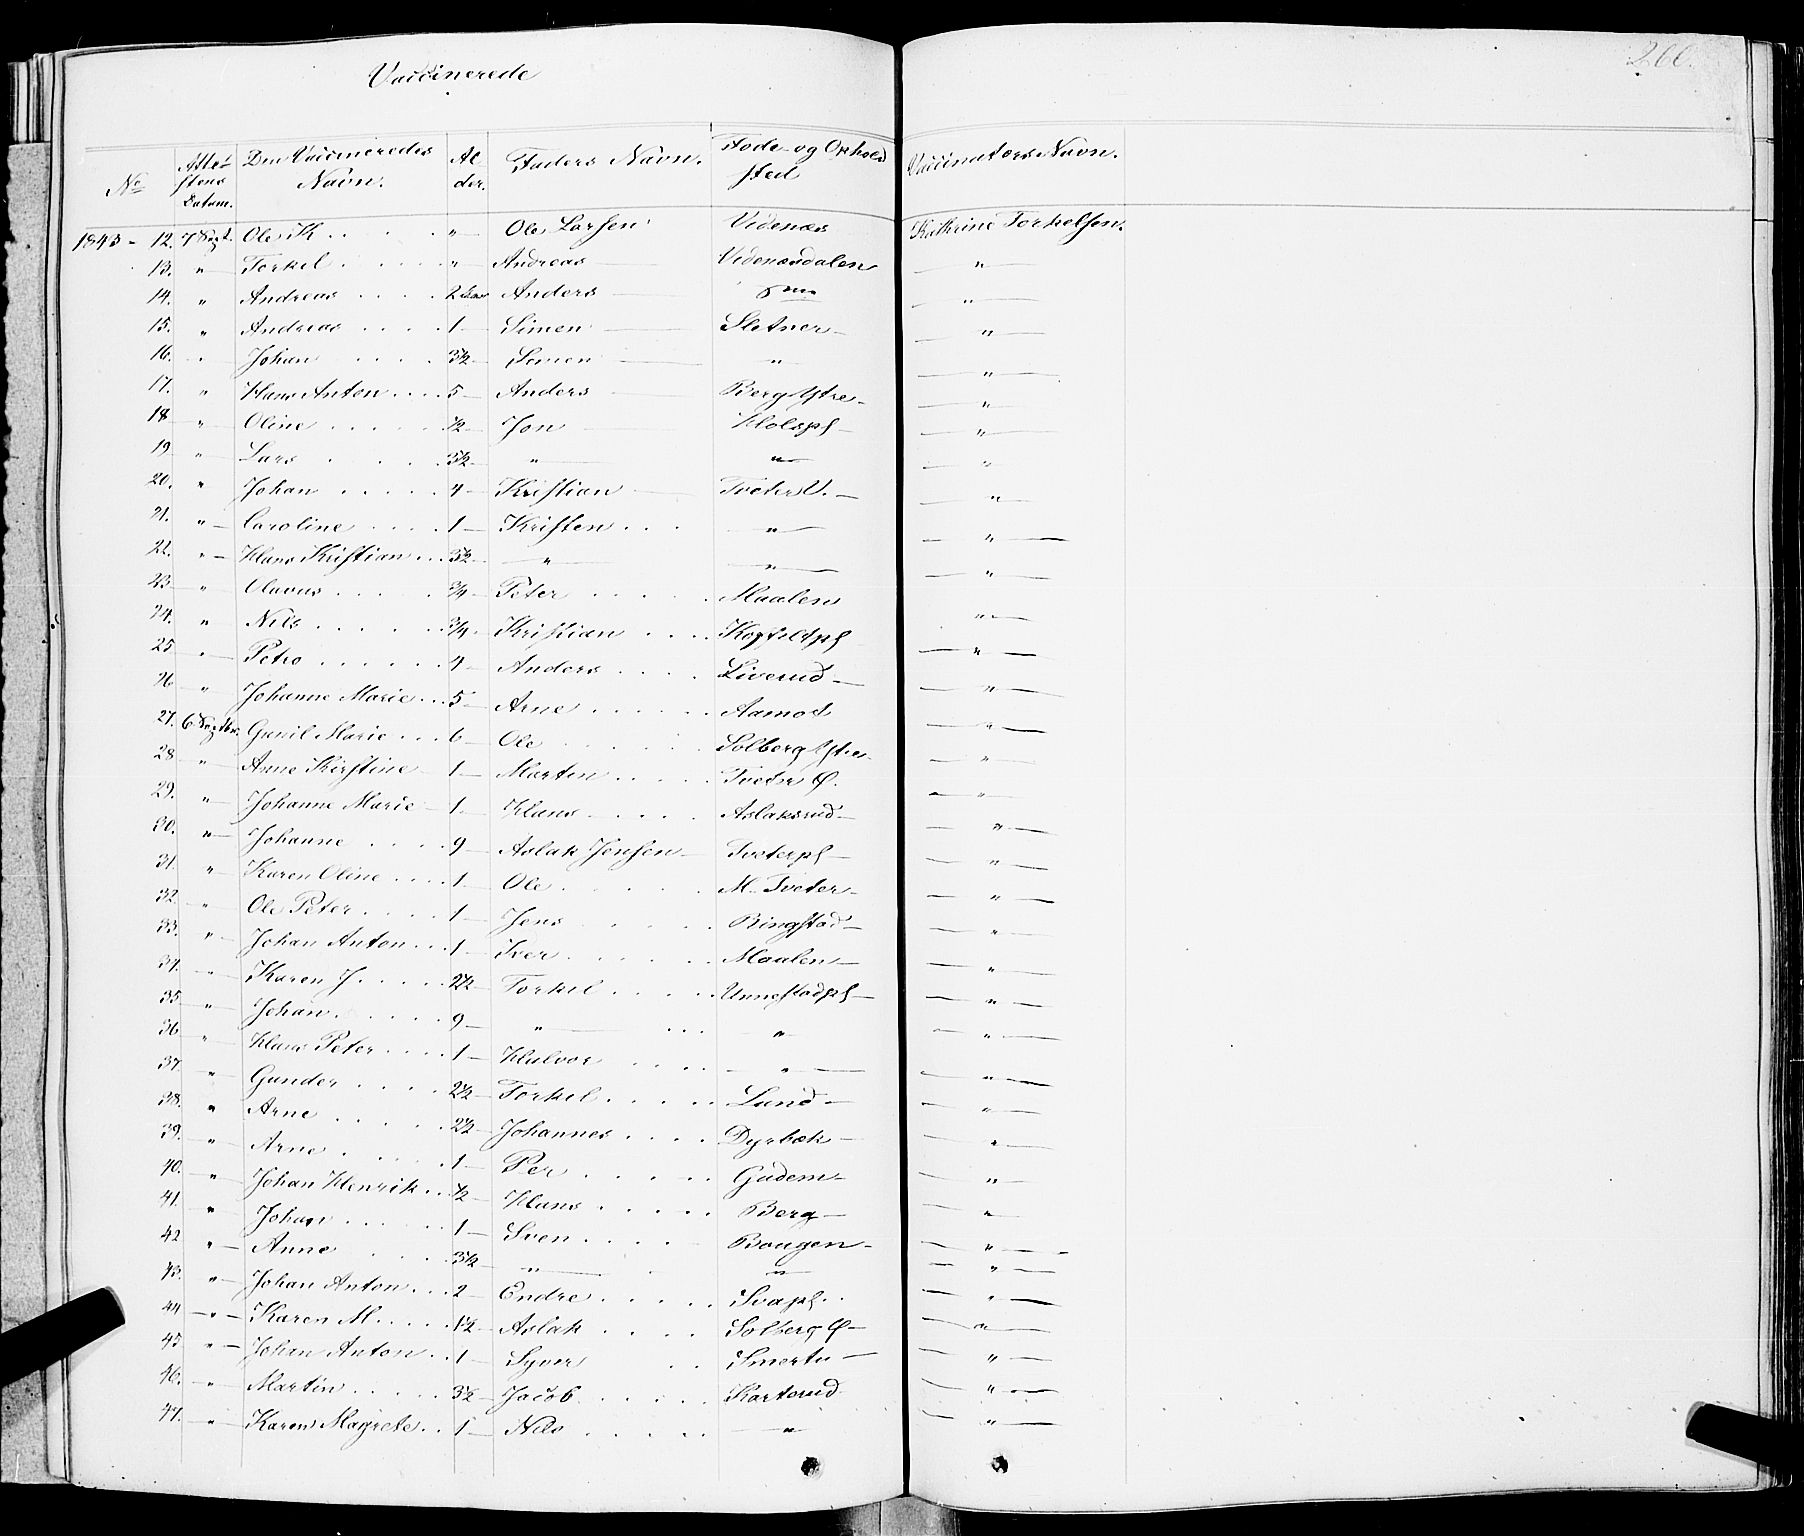 Vaccinerede
260.
No Attestens Datum. Den Vaccineredes Navn. Alder. Faders Navn. Føde- og Ophold sted Vaccinators Navn.
1843 - 12. 7 Sept. Ole K . . . . " Ole Larsen Videnæs Kathrine Torkelsen.
13. " Torkel . . . . . " Andreas Videnæsdalen "
14. " Andreas . . . . 2 Anders "
15. " Andreas . . . . 1 - Simen Sletner - "
16. " Johan . . . . 3½ - Simen " "
17. " Hans Anton . . . . 5 - Anders Berg Ystre - "
18 " - Oline . . . . . ½ - Jon Holspl - "
19 " - Lars . . . . 3½ - " " "
20. " Johan . . . . . 4 - Kristian Tveter V. - "
21. " - Caroline . . . . 1 - Kristen . . . " "
22. " - Hans Kristian . . . 3½ - " " "
23 - " - Olavus . . . . . ¾ - Peter . . . . . Maalen "
24. " Nils . . . . . . ¾ - Kristian . . . . "
25 " - Petro . . . . . . 4 - Anders . . . . Liverud - "
26 " - Johanne Marie . . . 5 - Arne . . . . . . Aamot "
27. 6 Septbr. Gunil Marie . . . 6 - Ole . . . . . . Solberg Ystre - "
28 " - Anne Kirstine - 1 - Marten . . . . . Tveter Ø. "
29. " - Johanne Marie - 1 - Hans . . . . . Aslaksrud - "
30. " - Johanne . . . . 9 - Aslak Jensen - Tveterpl - "
31. " - Karen Oline . . . . 1 - Ole . . . . . . M. Tveter - "
32. " - Ole Peter . . . . 1 - Jens . . . . . . Ringstad - "
33. " - Johan Anton . . . 1 - Iver . . . . . . Maalen - "
34. " - Karen J. . . . . . 2½ - Torkel . . . . . Unnestadpl - "
35. " - Johan . . . . . . 9 - " . . . " "
36 " - Hans Peter . . . . 1 - Halvor . . . . . " "
37. " - Gunder . . . . 2½ - Torkel . . . . . Lund - "
38. " - Arne . . . . . 2½ - Johannes . . . . Dyrbæk - "
39. " - Arne . . . . . 1 - Per . . . . . . Gudem - "
40. " - Johan Henrik . . ½ - Hans . . . . . Berg - "
41. " - Johan . . . . . 1 - Sven . . . . . Baugen - "
42 " - Anne . . . . 3½ " "  "
43. " - Johan Anton . . . 2 - Endre . . . . . Svapl . . "
44 - " - Karen M. . . . . 1½ - Aslak . . . . Solberg Ø - "
45 " - Johan Anton . . 1 - Syver . . Smertu - "
46. " - Martin . . . . . 3½ - Jacob . . . . . Kartorud "
47. " - Karen Magrete . . 1 - Nils . . . . . " "